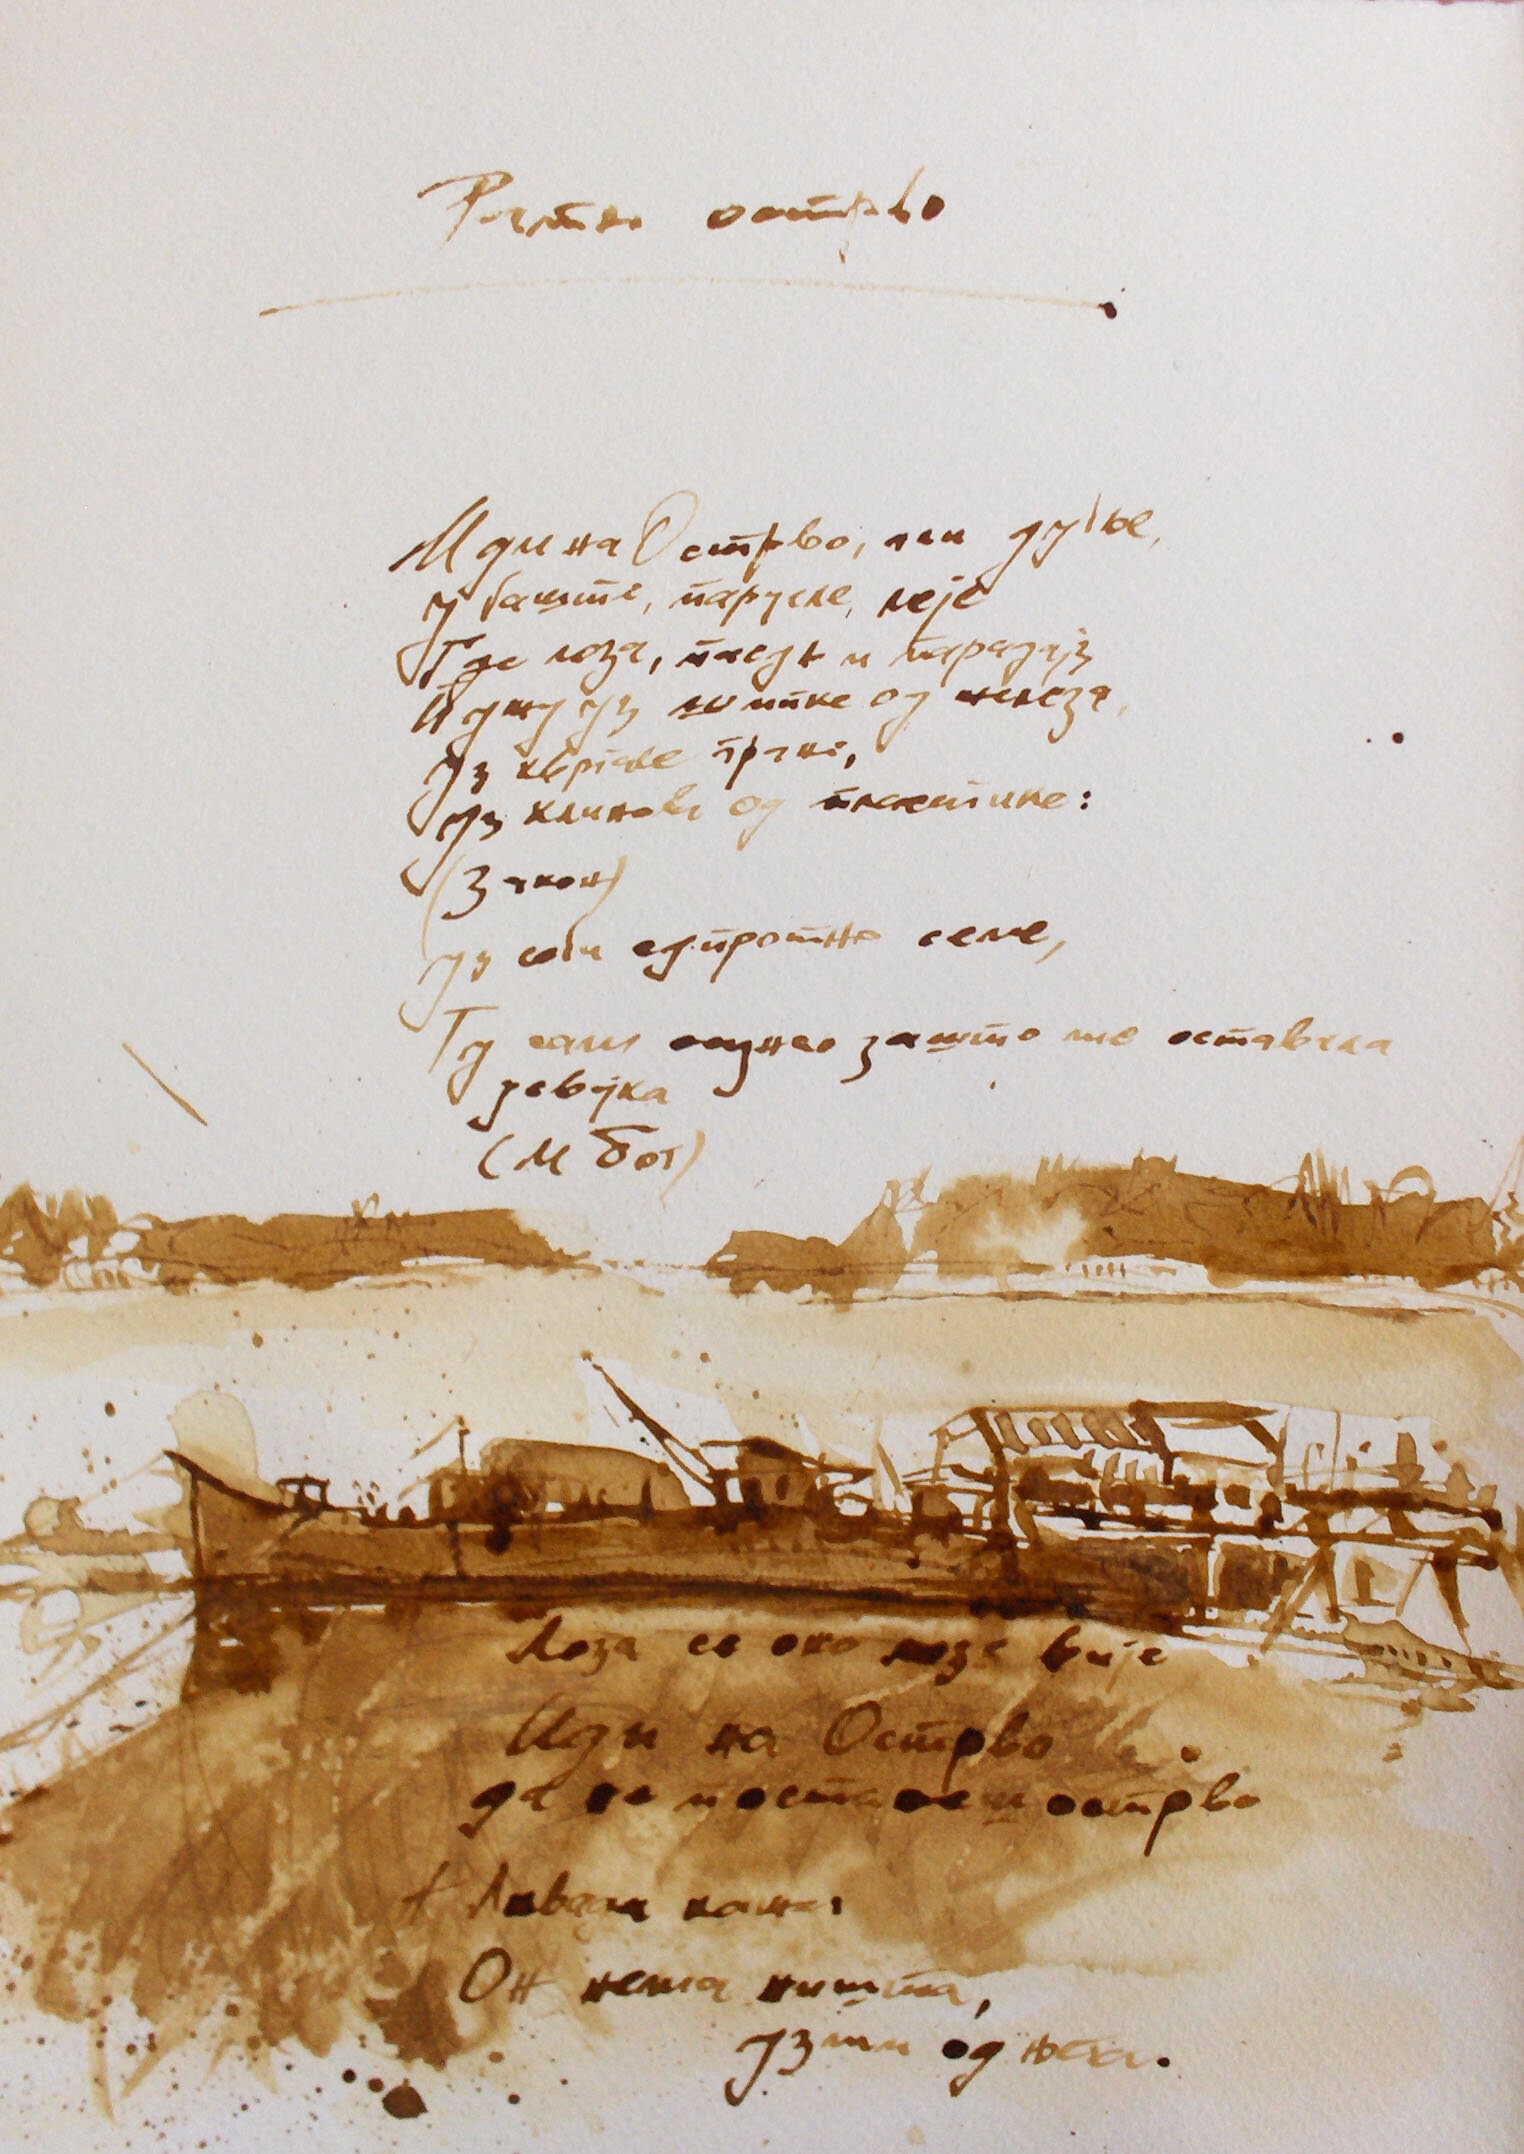 Ратно острво
Иди на Острво, али дубље,
у баште, парцеле, леје
Где лоза, пасуљ и парадајз
Пужу уз шипке од железа,
уз квргаве гране,
уз кланове од пластике:
(Закон)
уз себи супротно семе,
Ту сам сазнао зашто ме оставила
девојка
(М Бог)
Лоза се око лозе вије
Иди на Острво
да не постанеш острво
Ливади каже:
Он нема ништа,
узми од њега.